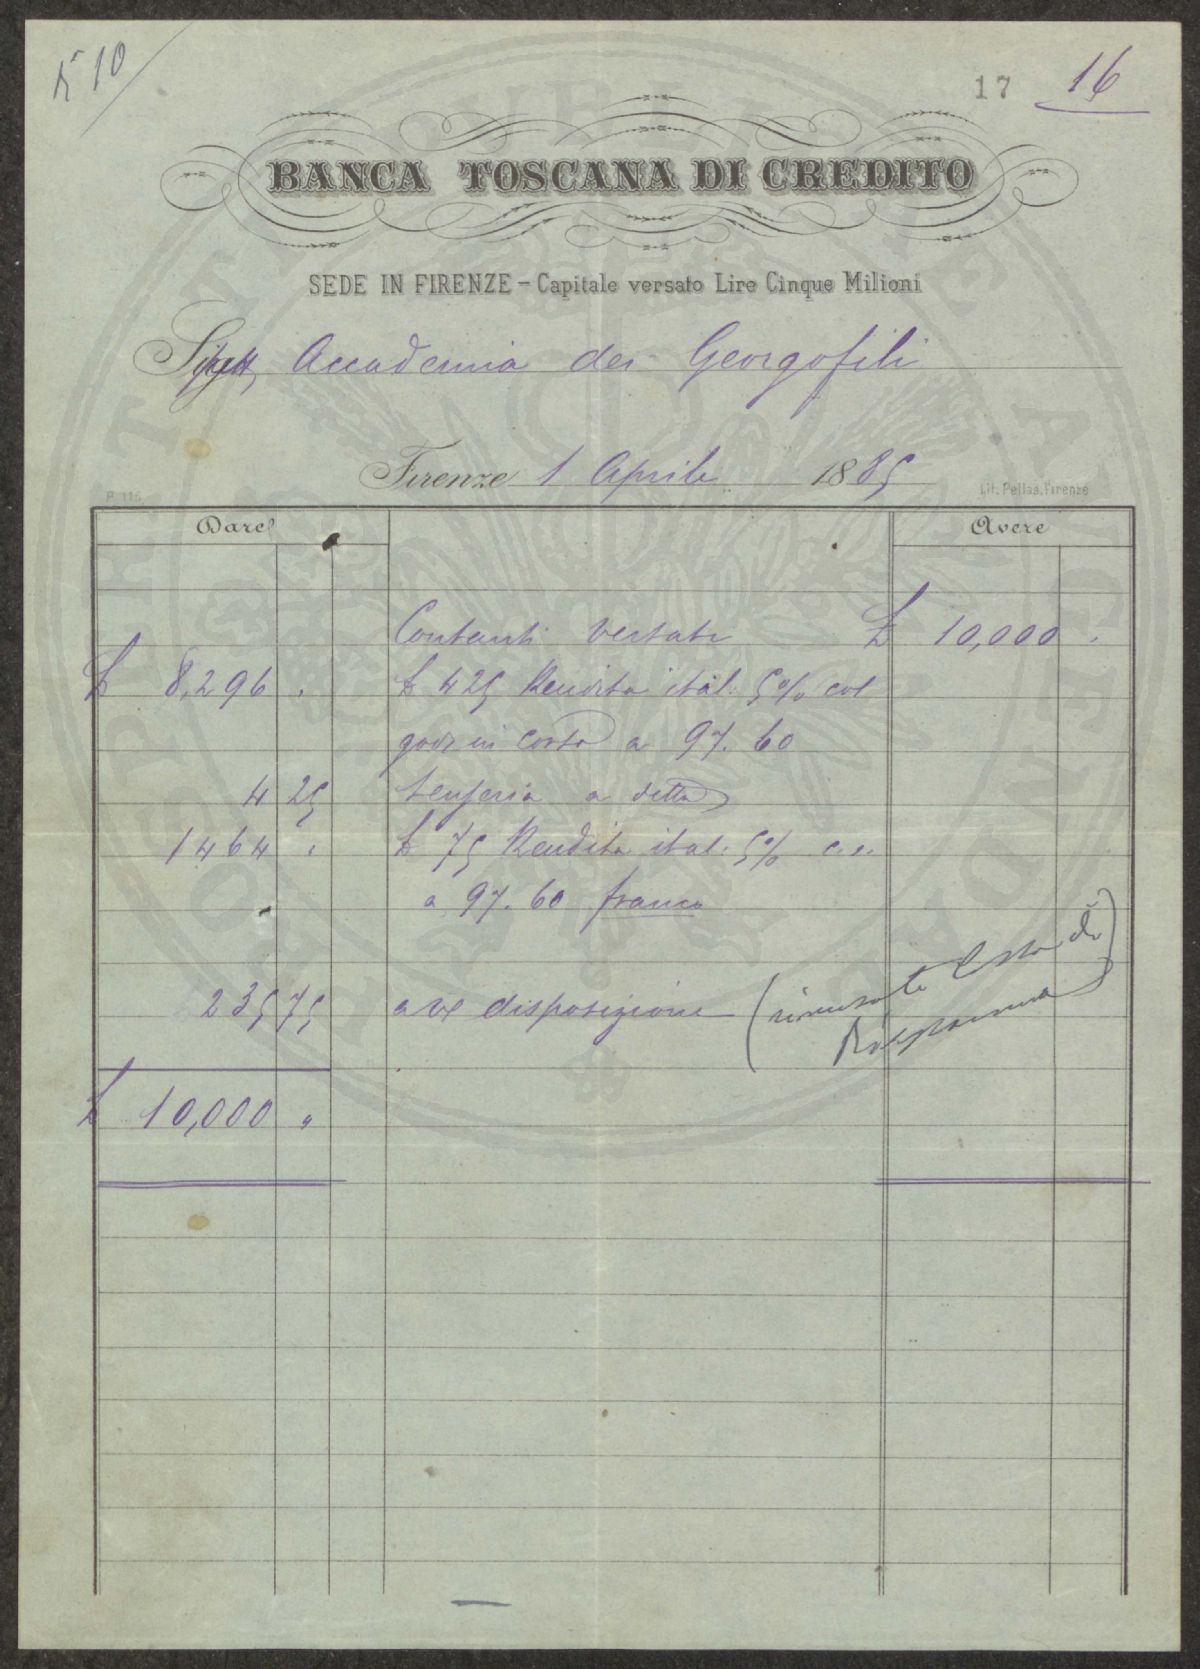 510
17 16
BANCA TOSCANA DI CREDITO
SEDE IN FIRENZE - Capitale versato Lire Cinque Milioni
Accademia dei Georgofili
Firenze 1 Aprile 1885
P. 115 Lit. Pellas, Firenze
Dare Avere
Contanti versati £ 10,000 "
£ 8,296 " £ 425 Rendita ital. 5% col
god: in corso a 97.60
4 25 Senseria a detta
1464 " £ 75 Rendita ital. 5% c.s.
a 97.60 franco
235 75 a vs disposizione (
Risparmio )
£ 10,000 "